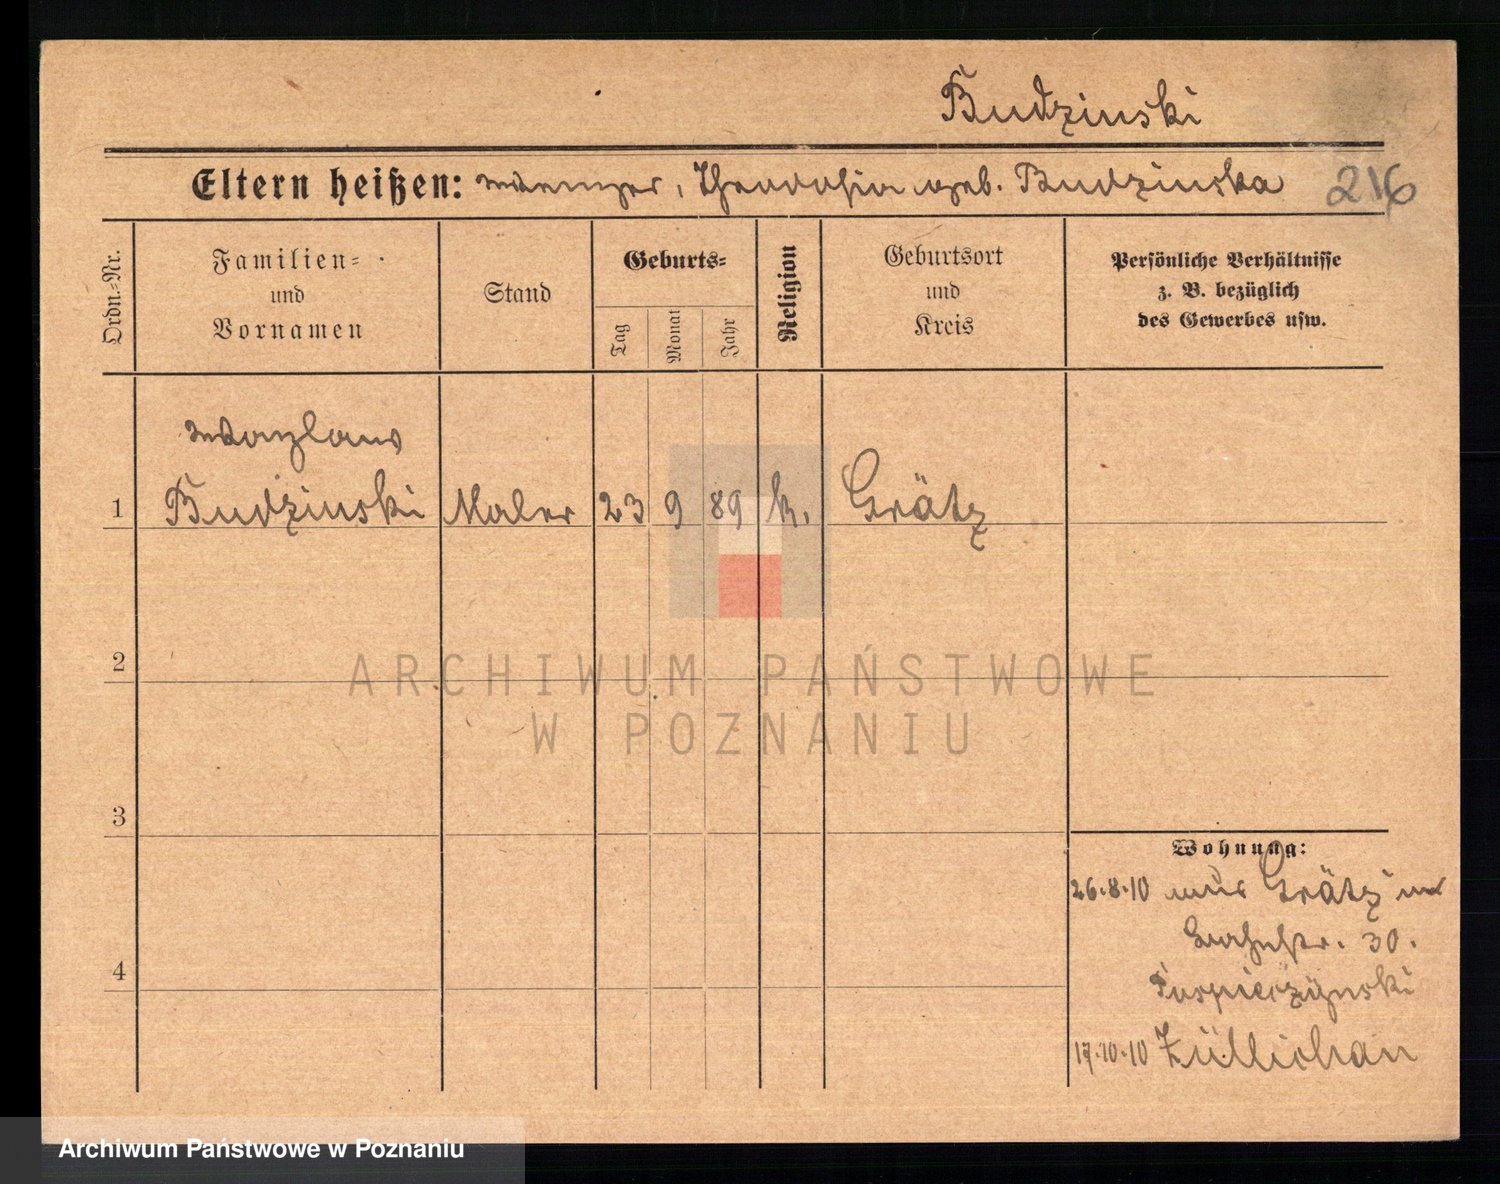 Budzinski
Eltern heißen: Theodosia geb. Budzinska 216
Ordn.-Nr.
Familien-
und
Vornamen
Stand
Geburts-
Tag
Monat
Jahr
Religion
Geburtsort
und
Kreis
Persönliche Verhältnisse
z. B. bezüglich
des Gewerbes usw.
1 Budzinski Maler 23 9 89 k. Grätz
2
ARCHIWUM PAŃSTWOWE
W POZNANIU
3
Wohnung:
26.8.10 aus Grätz
30.
4
17.10.10 Züllichau
Archiwum Państwowe w Poznaniu